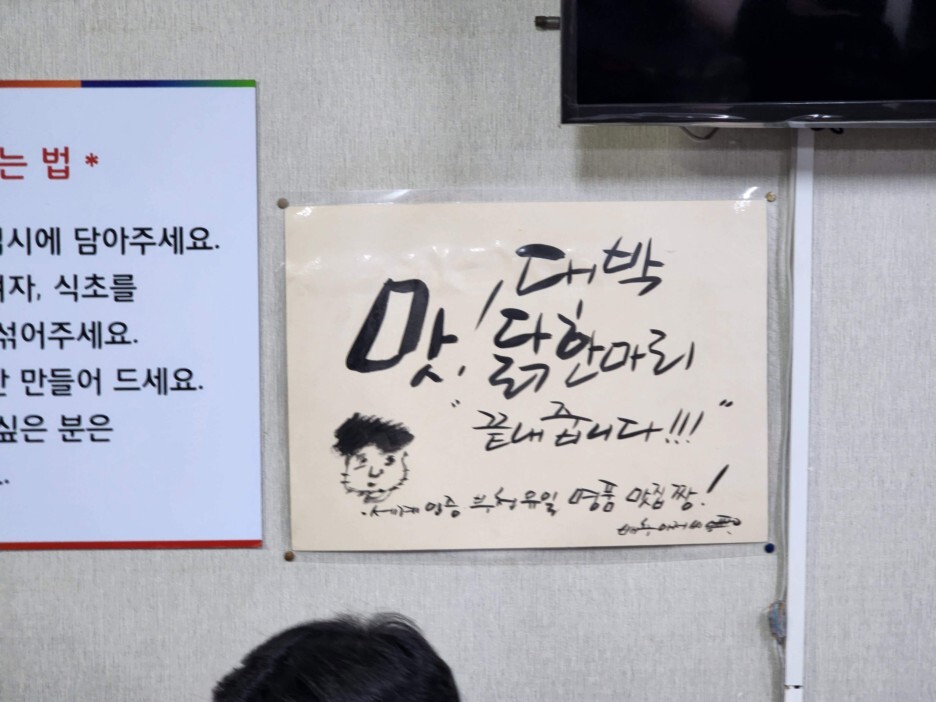 는 법 *
시에 담아주세요.
자, 식초를
섞어주세요.
만들어 드세요.
싶은 분은
맛! 대박
닭한마리
"끝내줍니다!!!"
세계 인증 부천 유일 명품 맛집 짱!